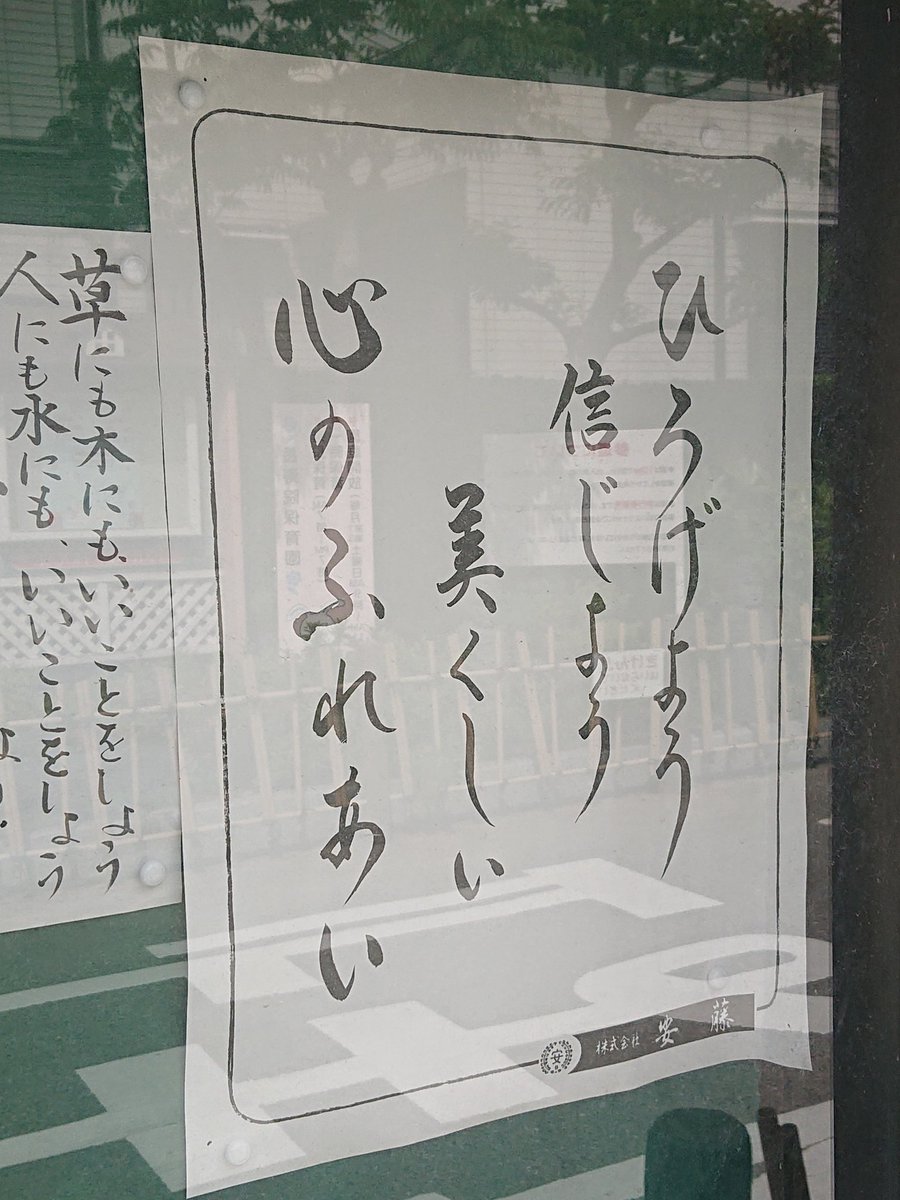 ひろげよう
信じよう
美くしい
心のふれあい
株式会社 安藤
安
草にも木にも、いいことをしよう
人にも水にも、いいことをしよう